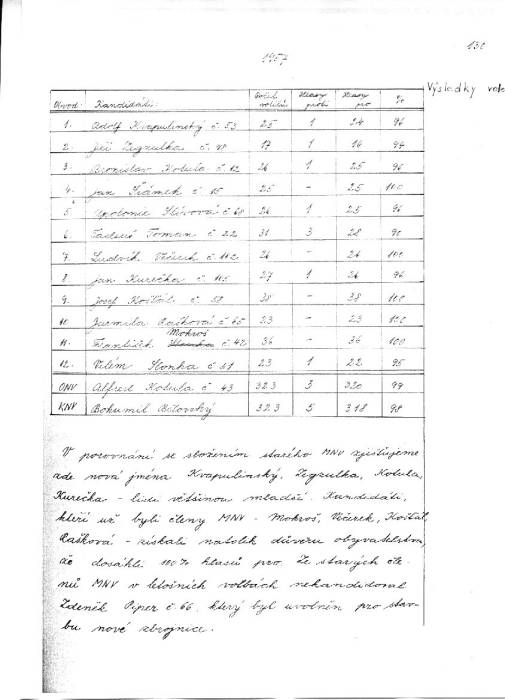 130
1957
Výsledky vole
Obvod: Kandidáti: Počet voličů Hlasy proti Hlasy pro %
1. Adolf Kvapulinský č. 53 25 1 24 96
2. Jiří Zegzulka č. 48 17 1 16 94
3. Bronislav Kotula č. 12 26 1 25 96
4. Jan Šrámek č. 15 25 - 25 100
5. Apolonie Slívová č. 68 26 1 25 96
6. Tadeuš Toman č. 22 31 3 28 90
7. Ludvík Věčerek č. 102 26 - 26 100
8. Jan Kurečka č. 105 27 1 26 96
9. Josef Košťál č. 58 38 - 38 100
10. Jarmila Rašková č. 65 23 - 23 100
11. František Mokroš č. 42 36 - 36 100
12. Vilém Slonka č. 31 23 1 22 95
ONV Alfred Kotula č. 43 323 3 320 99
KNV Bohumil Bílovský 323 5 318 98
V porovnání se složením starého MNV zjišťujeme
zde nová jména Kvapulinský, Zegzulka, Kotula,
Kurečka - lidé většinou mladší. Kandidáti,
kteří už byli členy MNV - Mokroš, Věčerek, Košťál,
Rašková - získali natolik důvěru obyvatelstva,
že dosáhli 100% hlasů pro. Ze starých čle-
nů MNV v letošních volbách nekandidoval
Zdeněk Piper č. 66, který byl uvolněn pro stav-
bu nové zbrojnice.